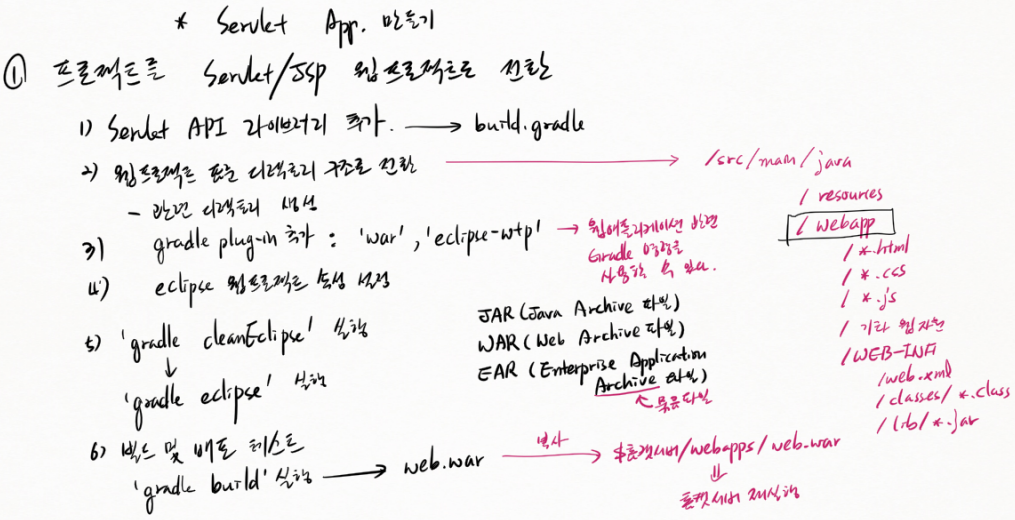 * Servlet App. 만들기
① 프로젝트를 Servlet/JSP 웹프로젝트로 전환
1) Servlet API 라이브러리 추가. → build.gradle
2) 웹프로젝트 표준 디렉토리 구조로 전환 → /src/main/java
/ resources
- 관련 디렉토리 생성
/ webapp
3) gradle plug-in 추가 : 'war', 'eclipse-wtp' → 웹애플리케이션 관련
Gradle 명령을
사용할 수 있다.
/ *.html
/ *.css
/ *.js
/ 기타 웹자원
/WEB-INF
/web.xml
/classes/ *.class
/lib/ *.jar
4) eclipse 웹프로젝트 속성 설정
5) 'gradle cleanEclipse' 실행
↓
'gradle eclipse' 실행
JAR (Java Archive 파일)
WAR (Web Archive 파일)
EAR (Enterprise Application
Archive 파일)
묶음파일
6) 빌드 및 배포 테스트
'gradle build' 실행 → web.war 복사 → $톰캣서버/webapps/web.war
⇓
톰캣서버 재실행